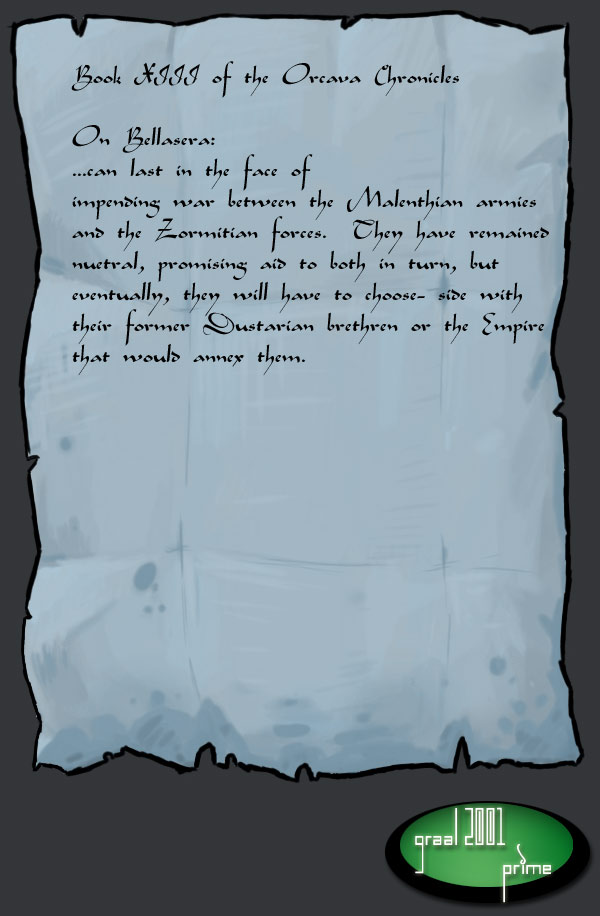 Book XIII of the Orcava Chronicles
On Bellasera:
...can last in the face of
impending war between the Malenthian armies
and the Zormitian forces. They have remained
nuetral, promising aid to both in turn, but
eventually, they will have to choose- side with
their former Dustarian brethren or the Empire
that would annex them.
graal 2001
prime